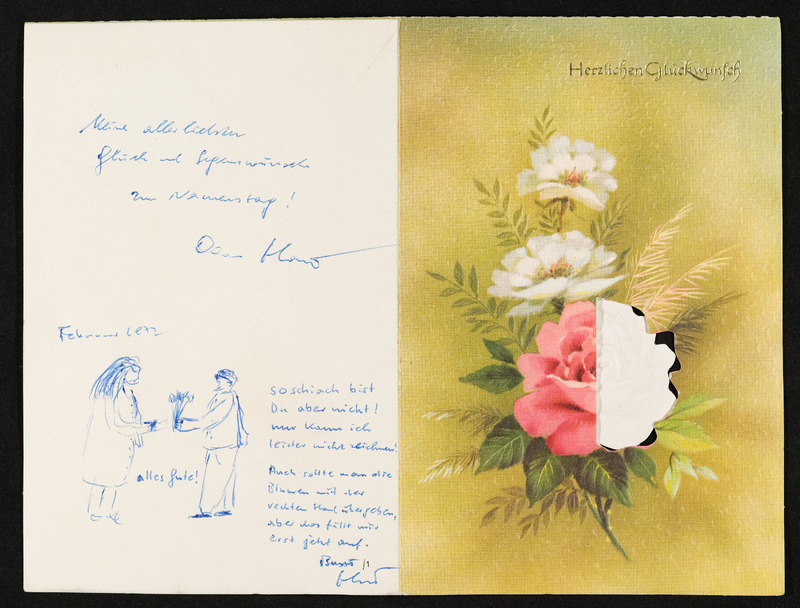 Meine allerliebsten
Glück und Segenswünsche
zum Namenstag!
Dein
Februar 1972
alles Gute!
so schiach bist
Du aber nicht!
nur kann ich
leider nicht zeichnen!
Auch sollte man die
Blumen mit der
rechten Hand übergeben,
aber das fällt mir
erst jetzt auf.
Bussi
Herzlichen Glückwunsch